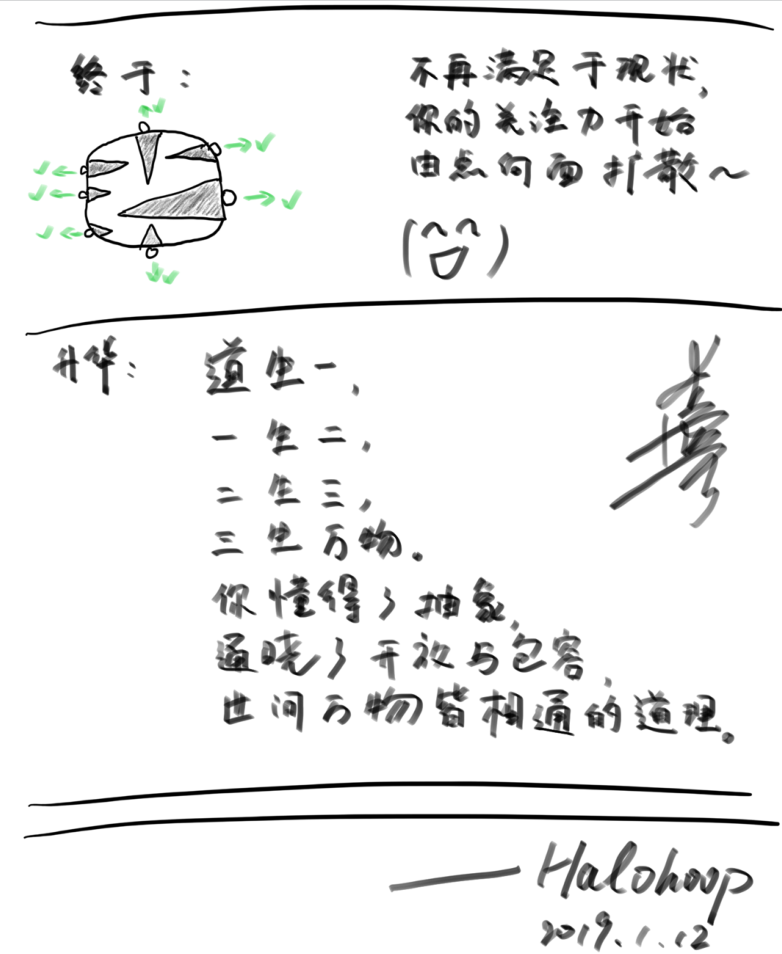 终于：
不再满足于现状，
你的关注力开始
由点向面扩散～
升华：
道生一，
一生二，
二生三，
三生万物。
你懂得了抽象，
通晓了开放与包容，
世间万物皆相通的道理。
——Halohoop
2019.1.12